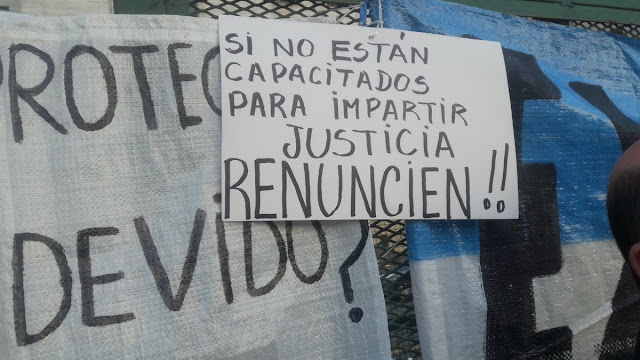 SI NO ESTÁN
CAPACITADOS
PARA IMPARTIR
JUSTICIA
RENUNCIEN!!
DEVIDO?